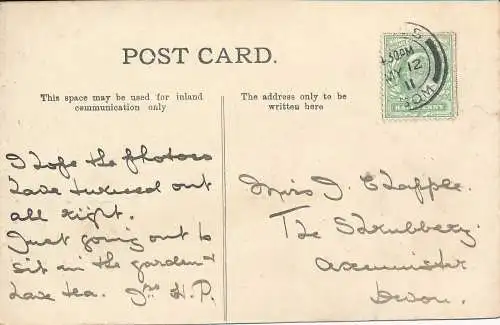 POST CARD.
This space may be used for inland
communication only
The address only to be
written here
I hope the photoes
have turned out
all right.
Just going out to
sit in the garden &
have tea. Yrs H.P.
Miss J Chapple.
The Shrubbery.
Axminster
Devon.
MY 12
11
HALFPENNY